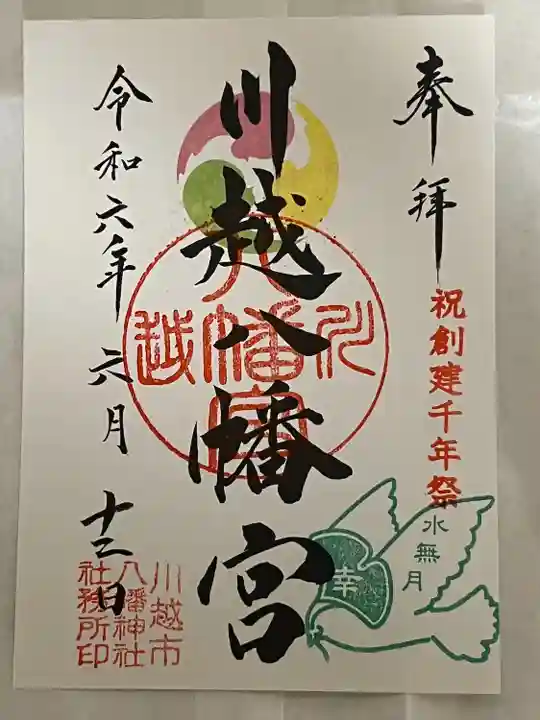 奉拝
祝創建千年祭
水無月
幸
川越八幡宮
川越
八幡宮
令和六年 六月 十二日
川越市
八幡神社
社務所印